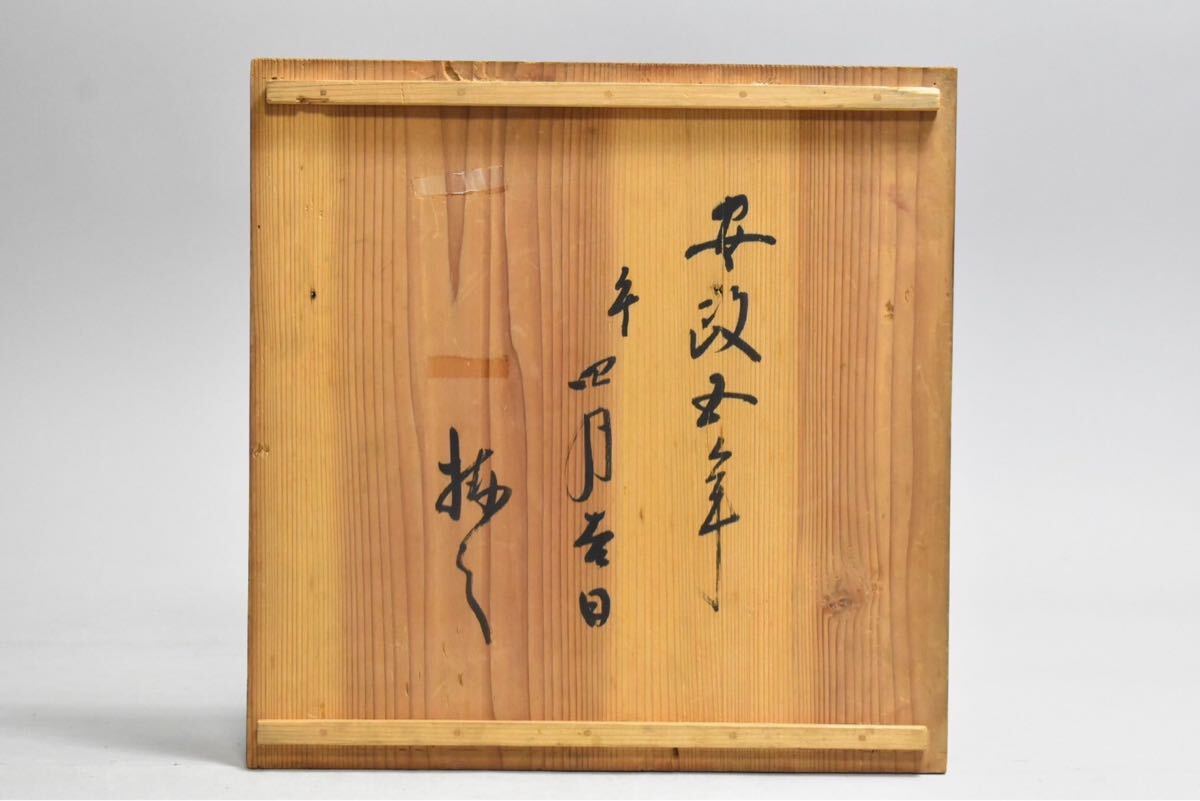 安政五年
午四月吉日
求之